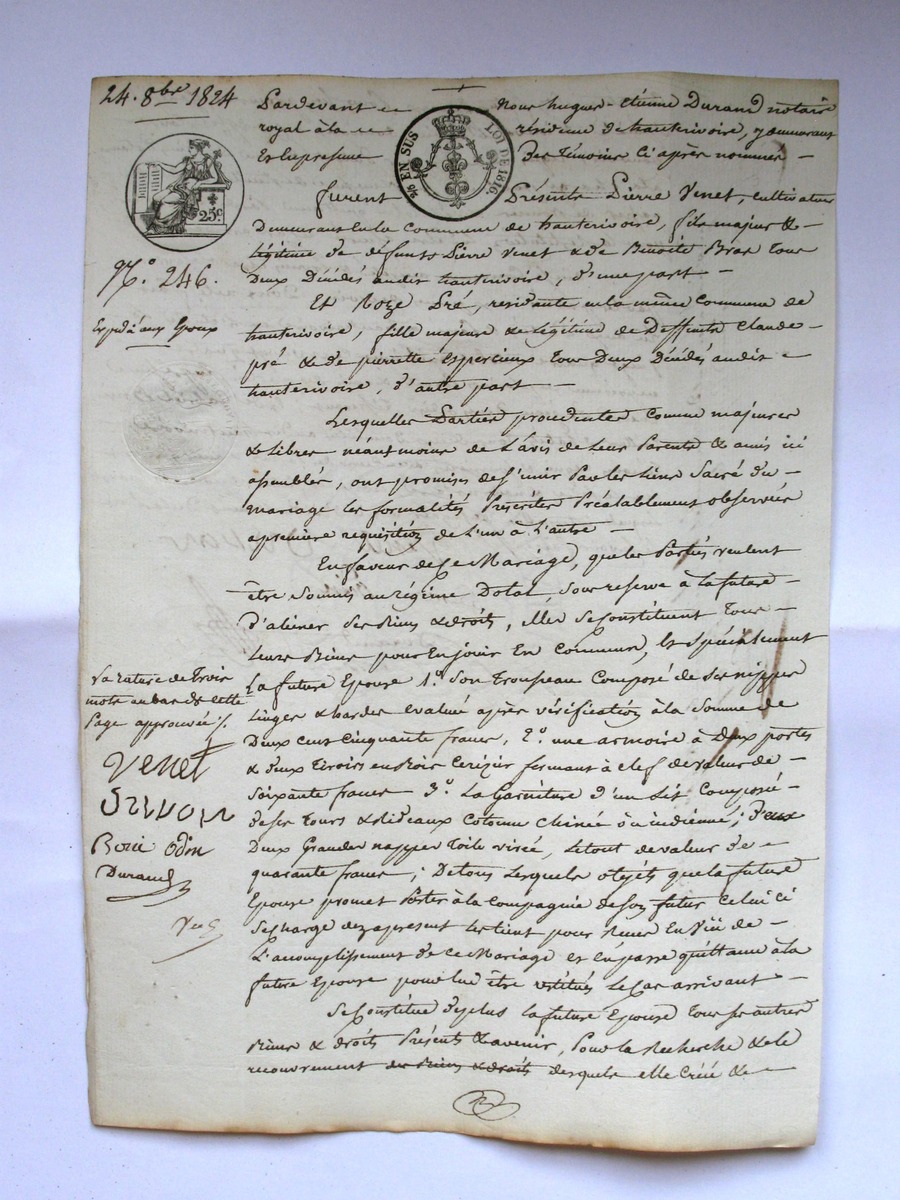 24. 8bre 1824
Pardevant Nous hugues-étienne Durand notaire
royal à la résidence de hauterivoire, y demeurant
Et En presence Des témoins ci après nommés
¼ EN SUS LOI DE 1816
25c
furent Présents Pierre Venet, cultivateur
Demeurant En la Commune de hauterivoire, fils majeur &
légitime de défunts Pierre Venet & de Benoite Bras tous
Deux Décédés audit hauterivoire, d'une part
N.° 246.
Et Roze Pré, residante en la même Commune de
Expédié aux Epoux
hauterivoire, fille majeure & légitime de Deffunts Claude
pré & de pierrette Esparcieux tous Deux Décédés audit
hauterivoire, d'autre part
Lesquelles Parties procedantes comme majeures
& Libres néantmoins de l'avis de Leurs Parents & amis ici
assemblés, ont promises de s'unir Par les liens Sacré du
mariage les formalités Prescrites Préalablement observées
a premiere requisition de L'un à L'autre
En faveur de Ce Mariage, que les Parties veulent
être Soumis au régime Dotal, Sous reserve à la future
D'aliéner Ses Biens & droits, Elles Se Constituent Tous
Leurs Biens pour En jouir En Commun, Et Spécialement
La future Epouse 1.° Son Trousseau Composé de Ses nippes
Linges & hardes évalué après vérification à la Somme de
Deux cent Cinquante francs, 2.° une armoire à Deux portes
& deux Tiroirs en Bois Cerizier fermant à clef de valeur de
Soixante francs 3.° La Garniture d'un Lit Composée
de ses Tours & Rideaux Cotonne Chinée ou indienne; Deux
Deux Grandes nappes Toile , Le tout de valeur de
quarante francs; De tous Lesquels objets que la future
Epouse promet Porter à la Compagnie de son futur Celui Ci
Se charge dez apresent Les tient pour Reçus En Vüe de
L'accomplissement de Ce Mariage et En passe quittance à la
future Epouse pour lui être restitués Le Cas arrivant
Se Constitue de plus la future Epouse Tous ses autres
Biens & droits Présents & avenir, Pour la Recherche & le
recouvrement des Biens & droits desquels elle Créé &
La rature de Trois
mots au bas de cette
Page approuvée
Venet
Odin
Durand